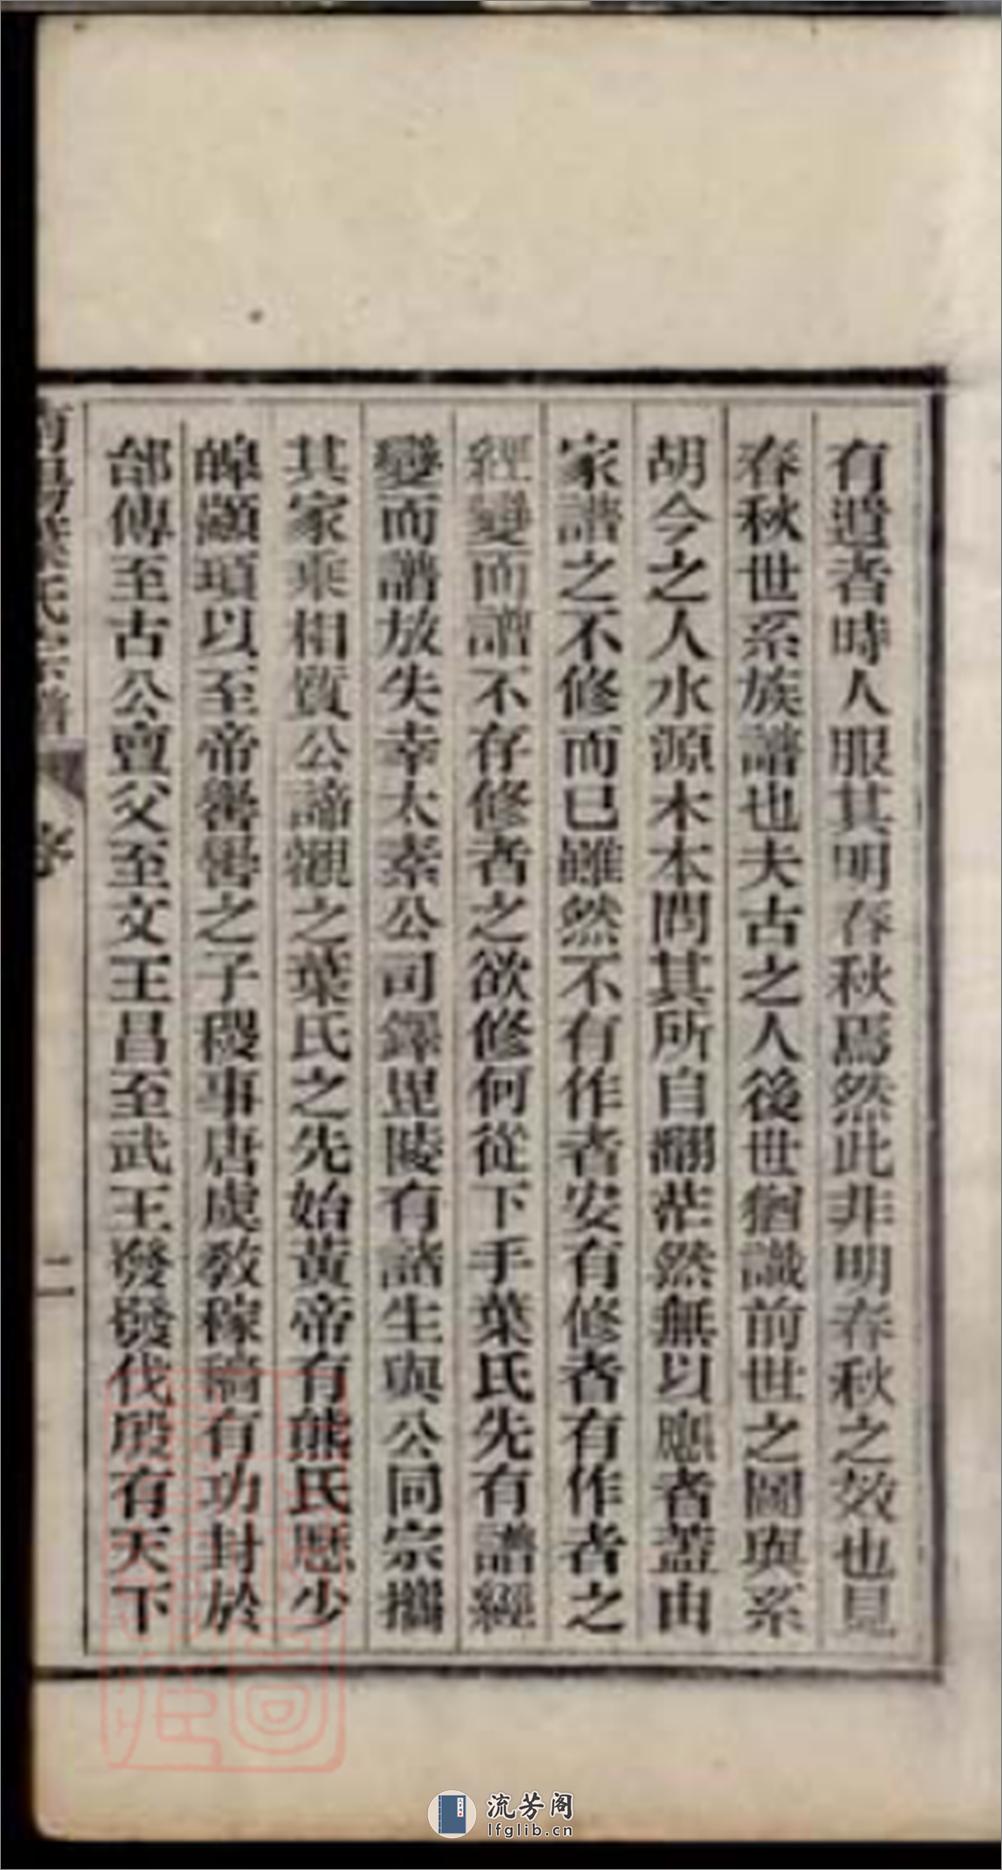 有道者時人服其明春秋焉然此非明春秋之效也見
春秋世系族譜也夫古之人後世猶識前世之圖與系
胡今之人水源木本問其所自翻茫然無以應者蓋由
家譜之不修而已雖然不有作者安有修者有作者之
經變而譜不存修者之欲修何從下手葉氏先有譜經
變而譜放失幸太素公司鐸毘陵有諮生與公同宗攜
其家乘相質公諦觀之葉氏之先始黃帝有熊氏歷少
皞顓頊以至帝嚳嚳之子稷事唐虞教稼穡有功封於
邰傳至古公亶父至文王昌至武王發發伐殷有天下
南陽葉氏宗譜 卷 二
流芳阁
lfglib.cn